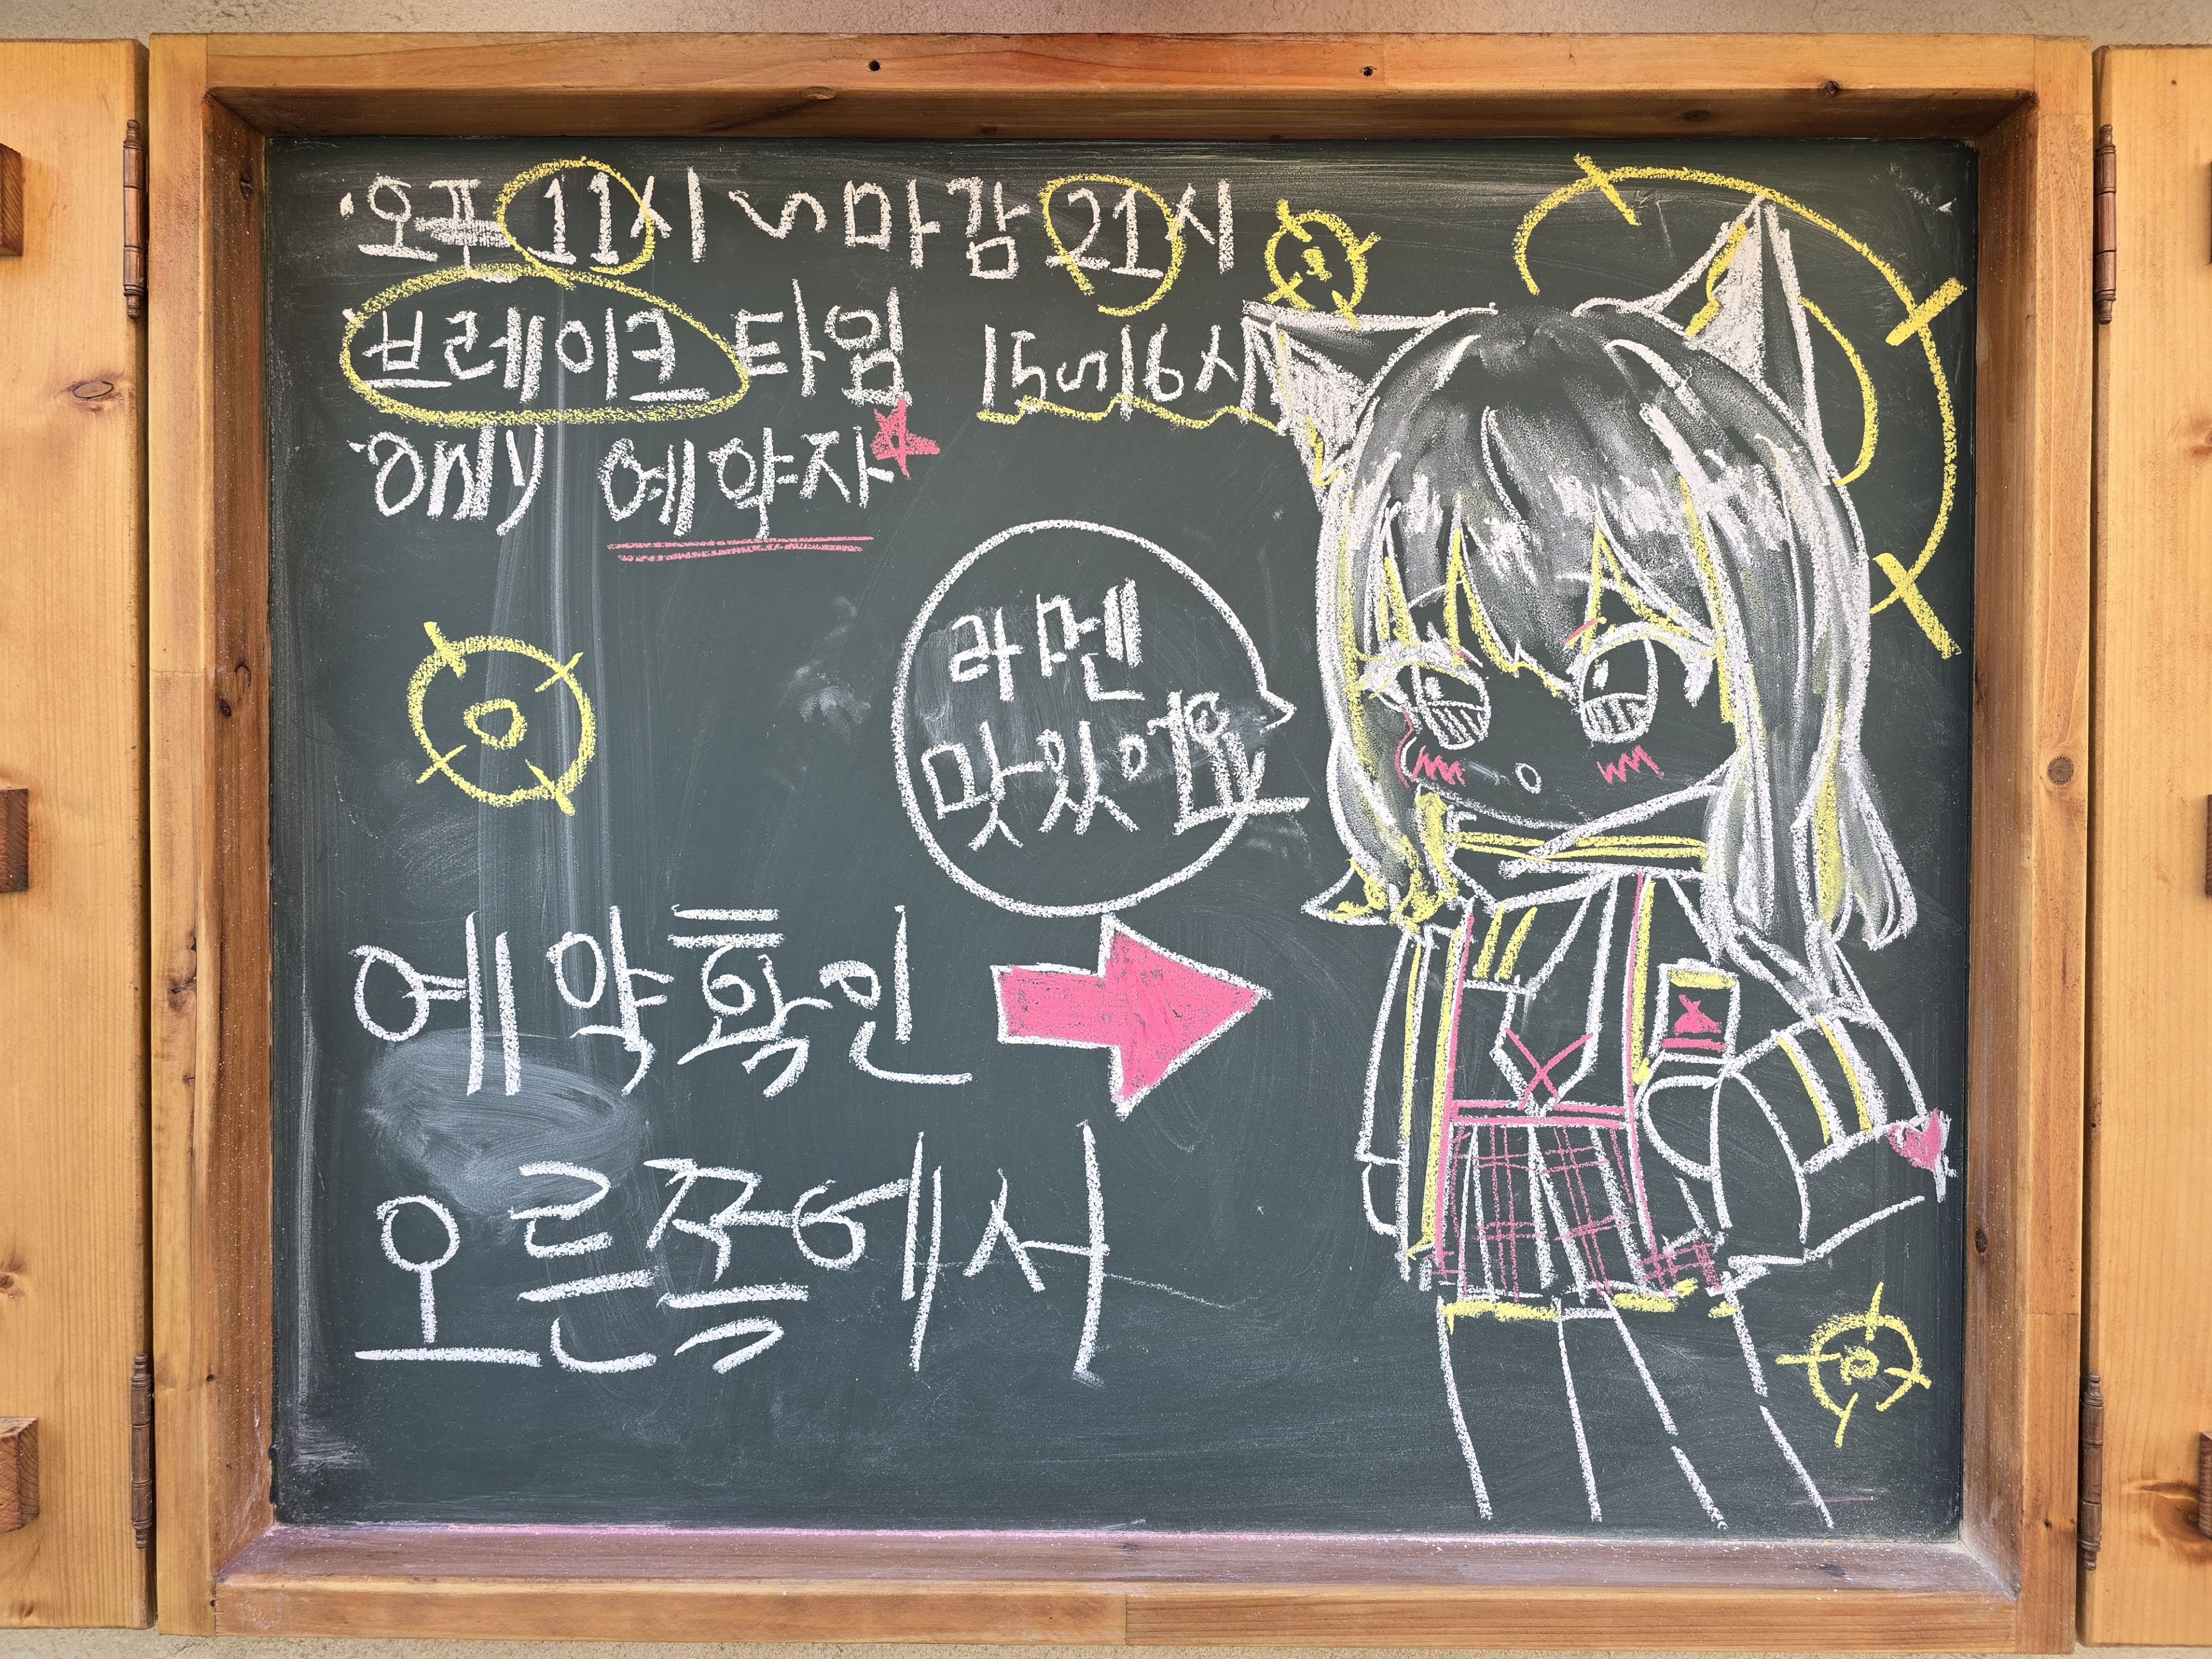 ·오픈 11시 ~ 마감 21시
브레이크 타임 15~16시
·only 예약자
라멘
맛있어요
예약확인
오른쪽에서